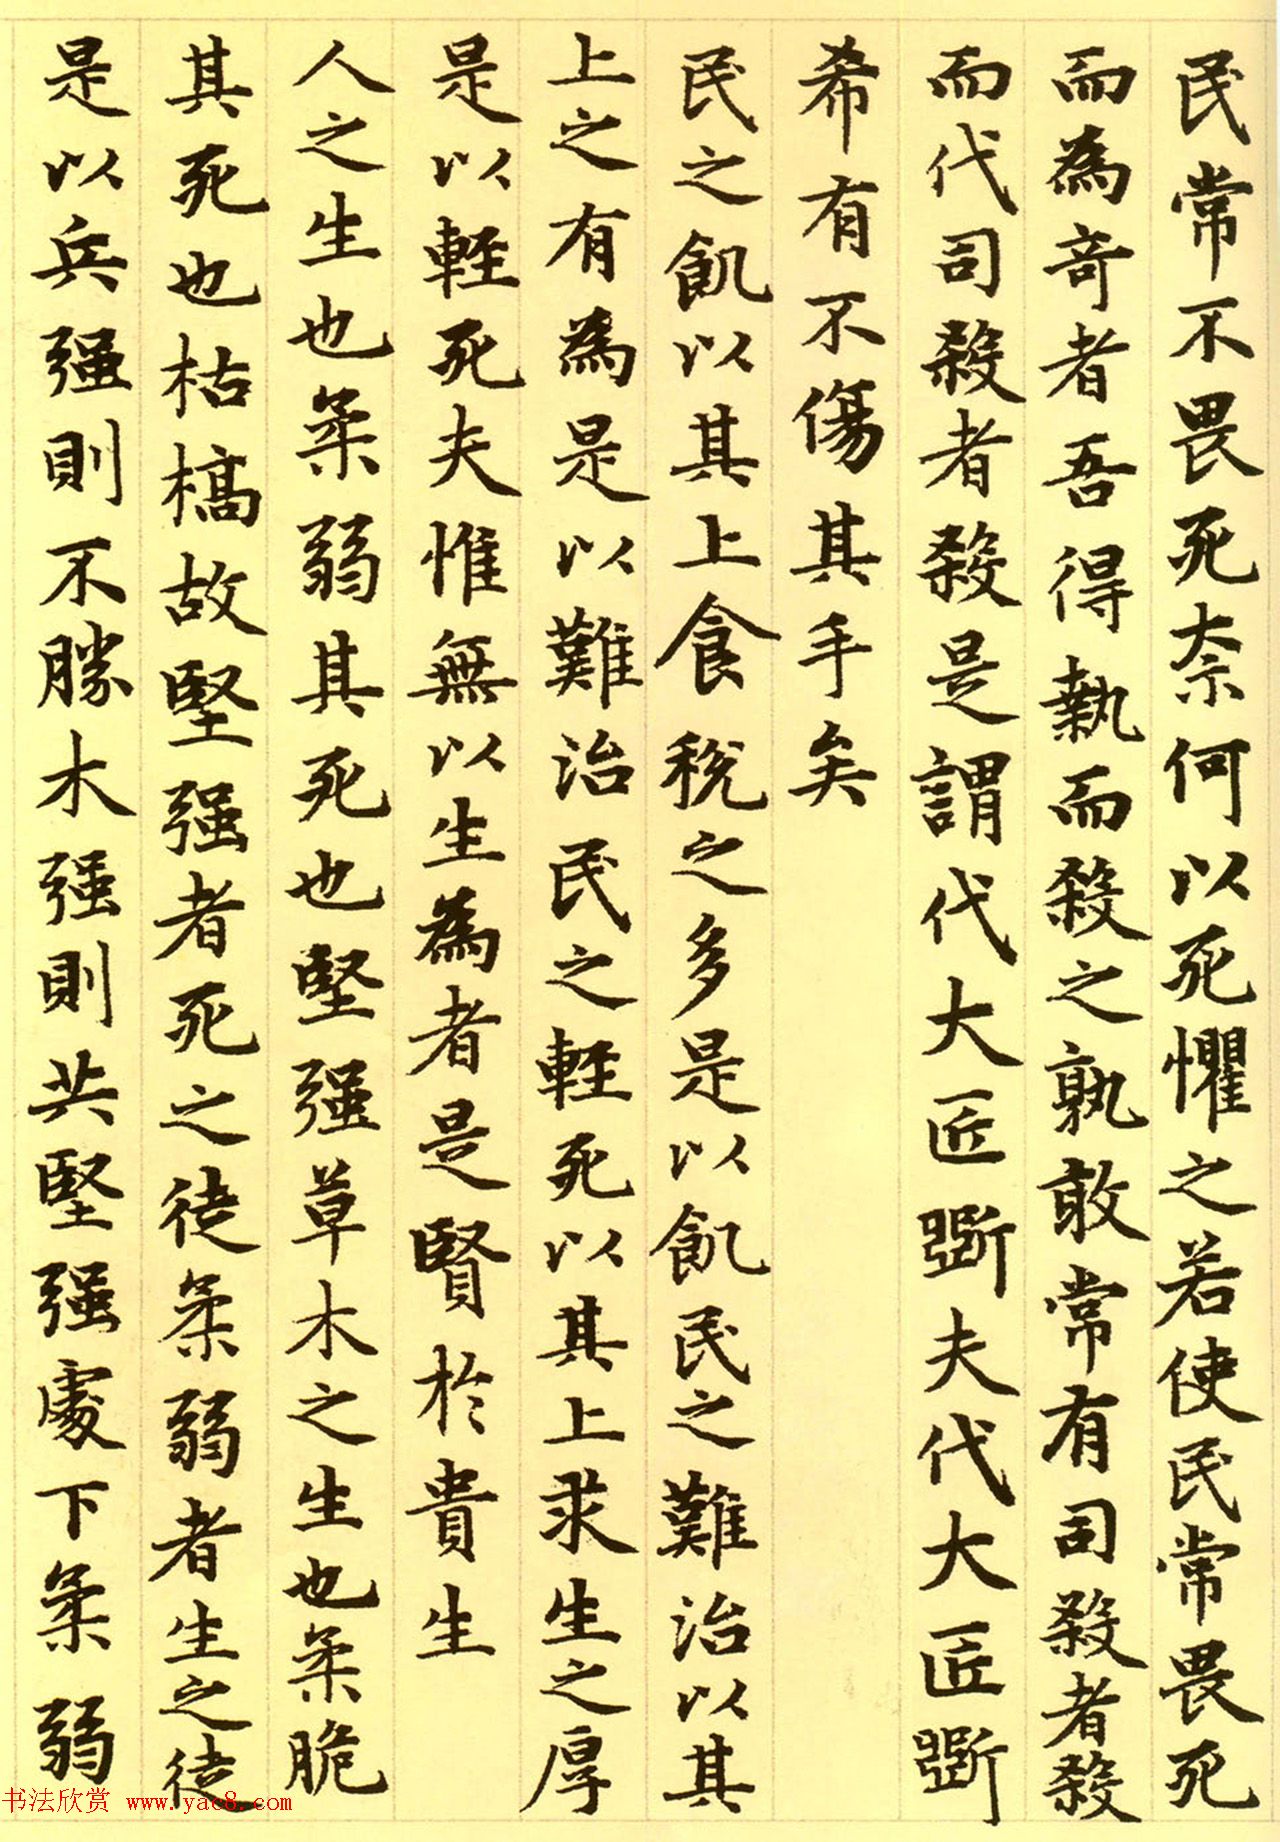 民常不畏死柰何以死懼之若使民常畏死
而為奇者吾得執而殺之孰敢常有司殺者殺
而代司殺者殺是謂代大匠斲夫代大匠斲
希有不傷其手矣
民之飢以其上食稅之多是以飢民之難治以其
上之有為是以難治民之輕死以其上求生之厚
是以輕死夫惟無以生為者是賢於貴生
人之生也柔弱其死也堅强草木之生也柔脆
其死也枯槁故堅强者死之徒柔弱者生之徒
是以兵强則不勝木强則共堅强處下柔弱
书法欣赏 www.yac8.com